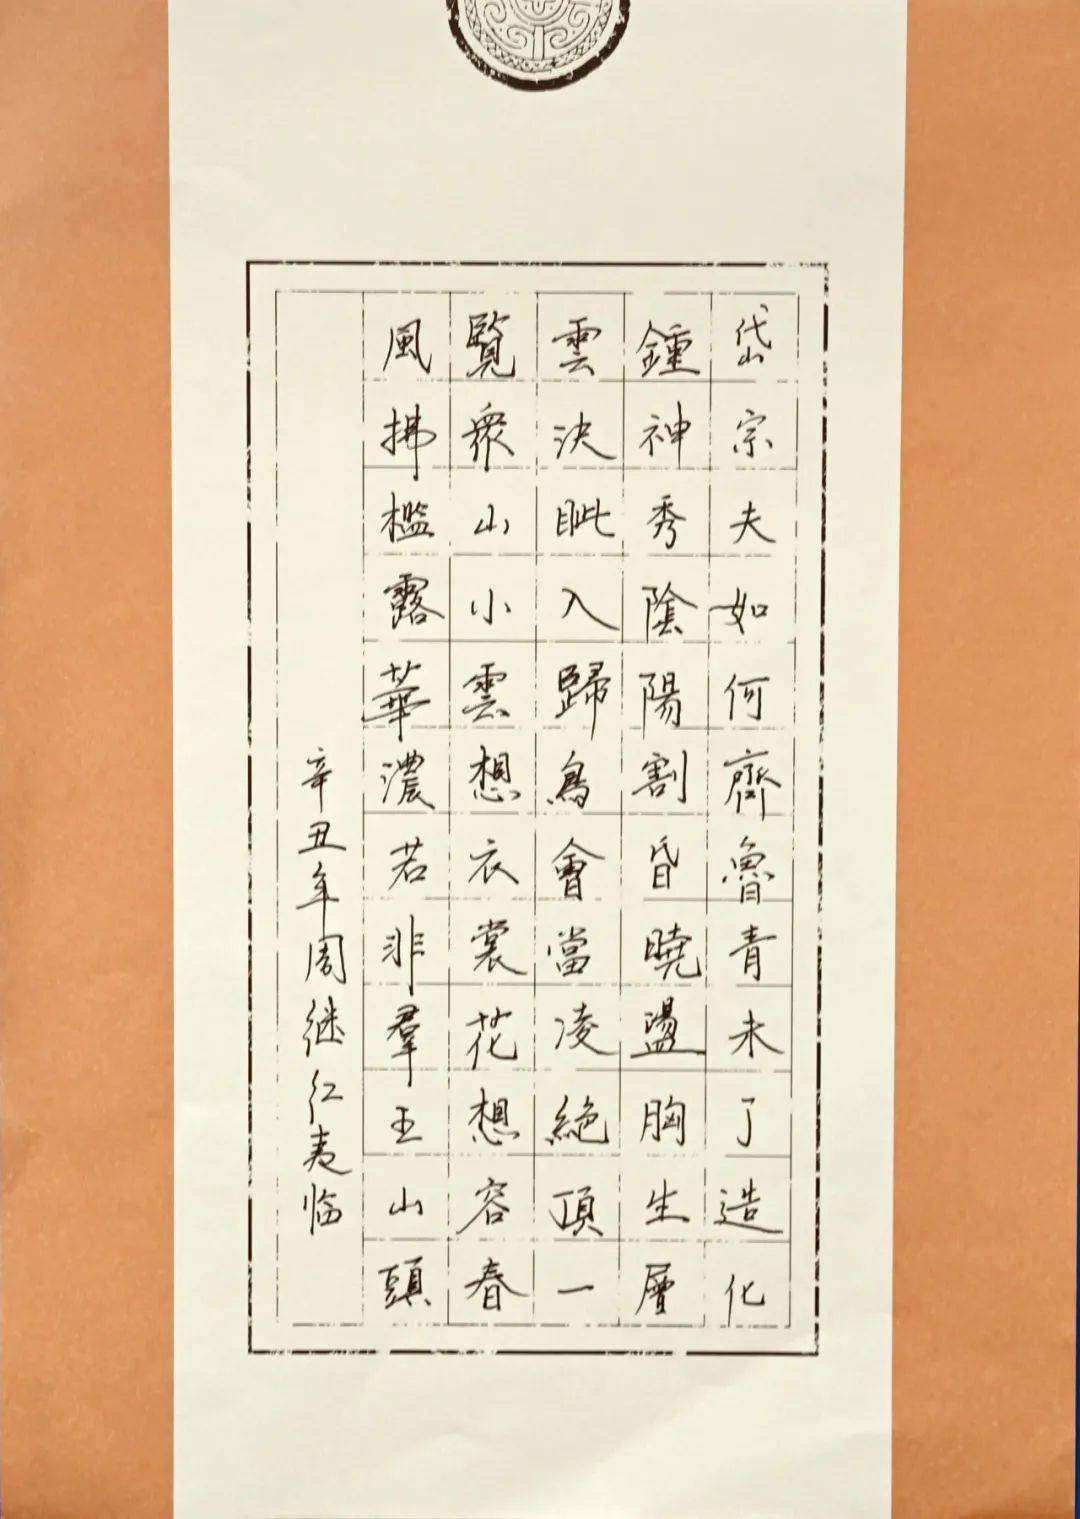 岱宗夫如何齊魯青未了造化
鍾神秀陰陽割昏曉盪胸生層
雲決眦入歸鳥會當凌絕頂一
覽衆山小雲想衣裳花想容春
風拂檻露華濃若非羣玉山頭
辛丑年周继仁夷临